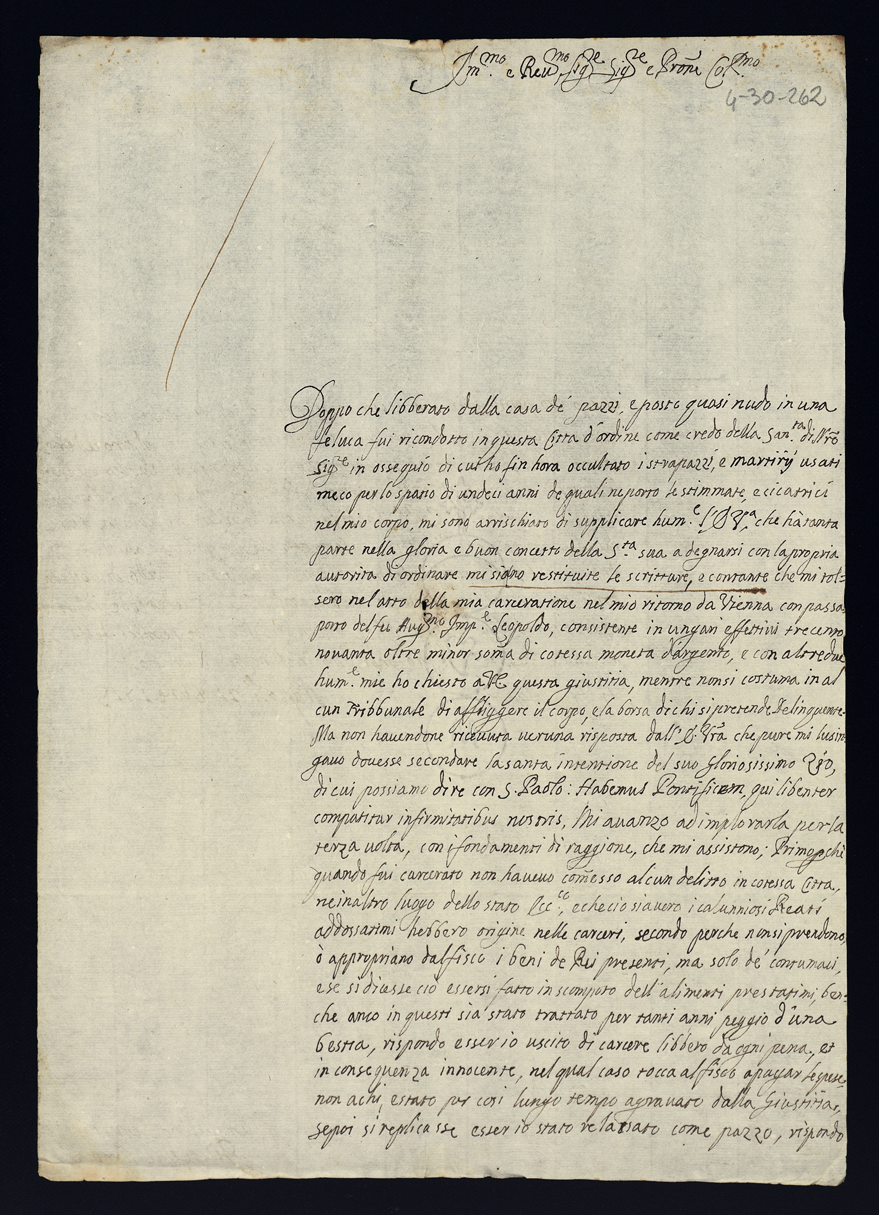 Ill.mo e Reu.mo Sig.re Sig.re e Prone Col.mo
4-30-262
Doppo che libberato dalla casa de' pazzi, e posto quasi nudo in una
feluca fui ricondotto in questa Citta d'ordine come credo della San.ta di Nrõ
Sig.re in ossequio di cui ho fin hora occultato i strapazzi, e martirij usati
meco per lo spatio di undeci anni de quali ne porto le stimmate, e cicatrici
nel mio corpo, mi sono arrischiato di supplicare hum.e V.a che hà tanta
parte nella gloria e buon concetto della S.ta sua a degnarsi con la propria
autorita di ordinare mi siano restituite le scritture, e contante che mi tol=
sero nel atto della mia carceratione nel mio ritorno da Vienna con passa=
porto del fu Aug.mo Imp.e Leopoldo, consistente in ungari effettivi trecento
novanta oltre minor som̃a di cotessa moneta d'argento, e con altre due
hum.e mie ho chiesto a questa giustitia, mentre non si costuma in al
cun Tribbunale di affliggere il corpo, e la borsa di chi si pretende Delinquente.
Ma non havendone ricevuta veruna risposta dall' Vrã che pure mi lusin
gavo dovesse secondare la santa intentione del suo gloriosissimo Zio,
di cui possiamo dire con S. Paolo: Habemus Pontificem, qui libenter
compatitur infirmitatibus nostris, Mi avanzo ad implorarla per la
terza volta, con i fondamenti di raggione, che mi assistono; Primo pchè
quando fui carcerato non havevo com̃esso alcun delitto in cotessa Citta,
ne in altro luogo dello stato Ecc.co, e che cio sia vero i calunniosi Reati
addossatimi hebbero origine nelle carceri, secondo perche non si prendono,
ò appropriano dal fisco i beni de Rei presenti, ma solo de' contumaci,
e se si dicesse ciò essersi fatto in scomputo dell'alimenti prestatimi, ben=
che anco in questi sia stato trattato per tanti anni peggio d'una
bestia, rispondo esser io uscito di carcere libbero da ogni pena, et
in consequenza innocente, nel qual caso tocca al fisco a pagar le spese
non a chi, è stato per così lungo tempo agravato dalla Giustitia,
se poi si replicasse esser io stato relassato come pazzo, rispondo